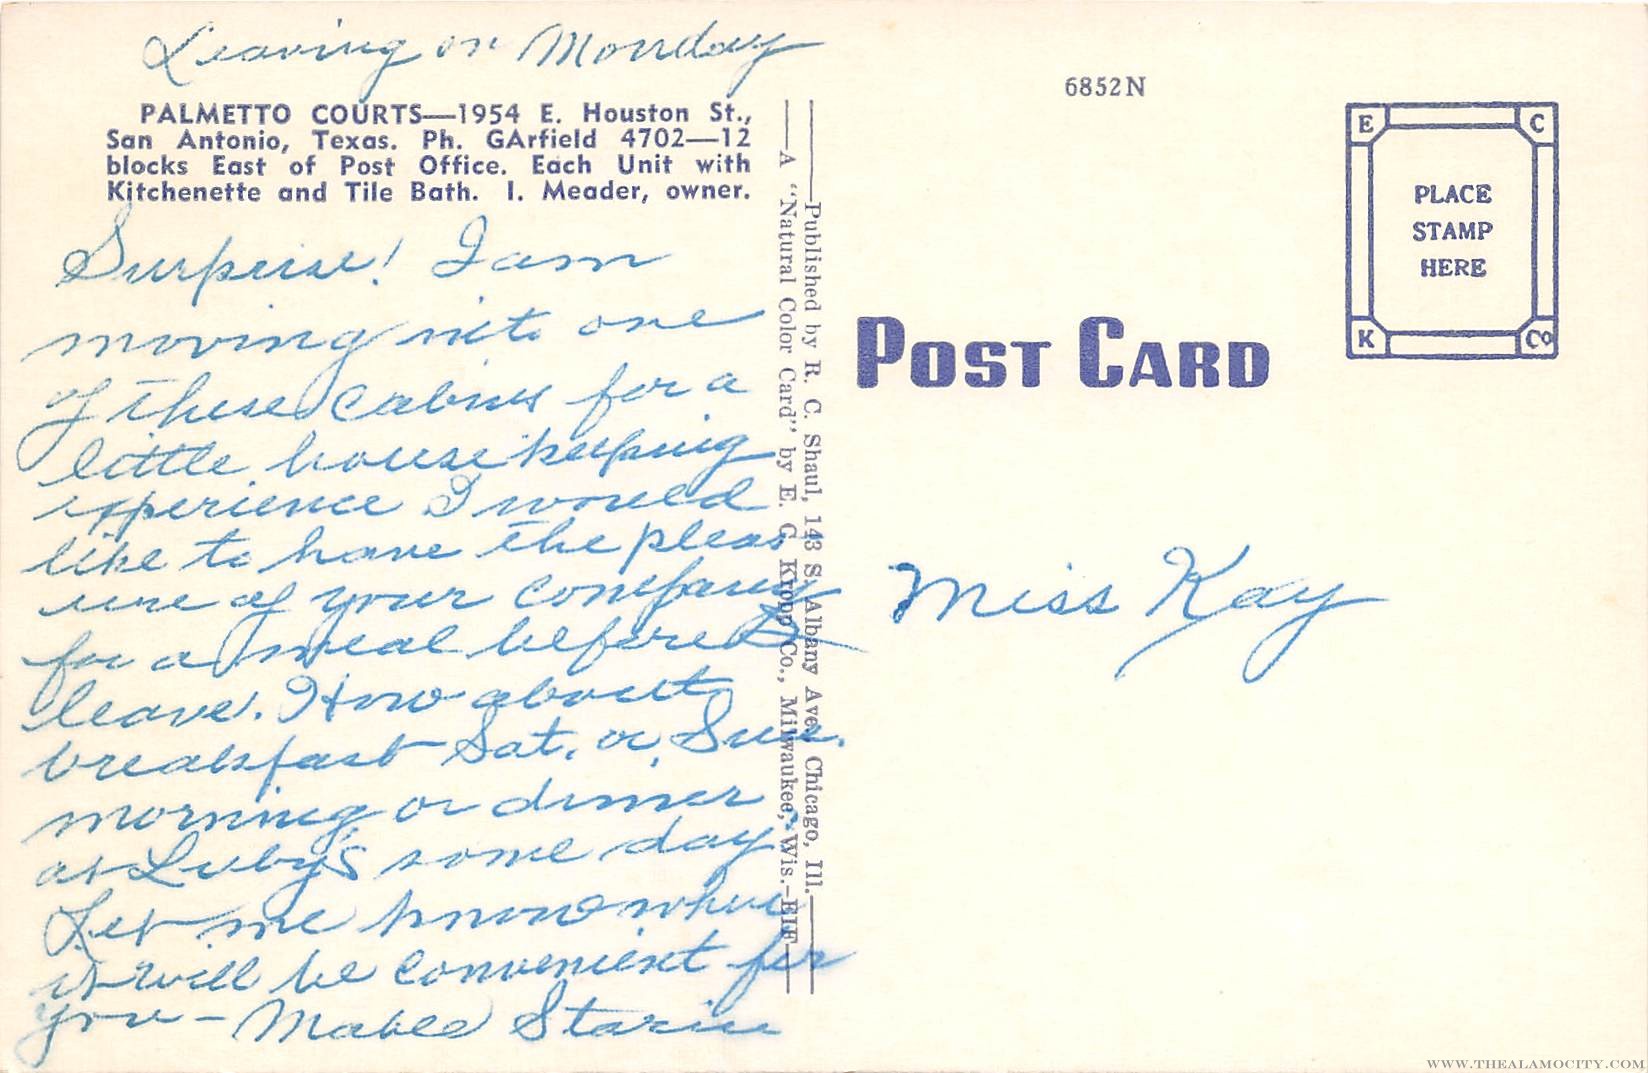 Leaving on Monday
PALMETTO COURTS—1954 E. Houston St.,
San Antonio, Texas. Ph. GArfield 4702—12
blocks East of Post Office. Each Unit with
Kitchenette and Tile Bath. I. Meader, owner.
Surprise! I am
moving into one
of these cabins for a
little house keeping
experience I would
like to have the pleas
ure of your company
for a meal before I
leave. How about
breakfast Sat. or Sun.
morning or dinner
at Luby's some day.
Let me know when
it will be convenient for
you — Mable
—Published by R. C. Shaul, 143 S. Albany Ave., Chicago, Ill.—
—A "Natural Color Card" by E. C. Kropp Co., Milwaukee, Wis.—EIF—
6852N
E C
PLACE
STAMP
HERE
K Co
POST CARD
Miss Kay
WWW.THEALAMOCITY.COM